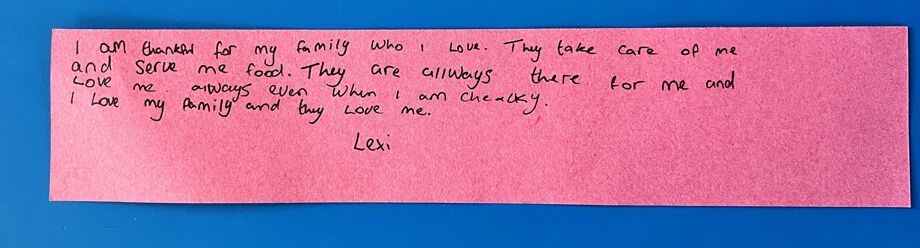 I am thankful for my family who I love. They take care of me
and serve me food. They are allways there for me and
Love me always even when I am chealky.
I Love my family and they Love me.
Lexi